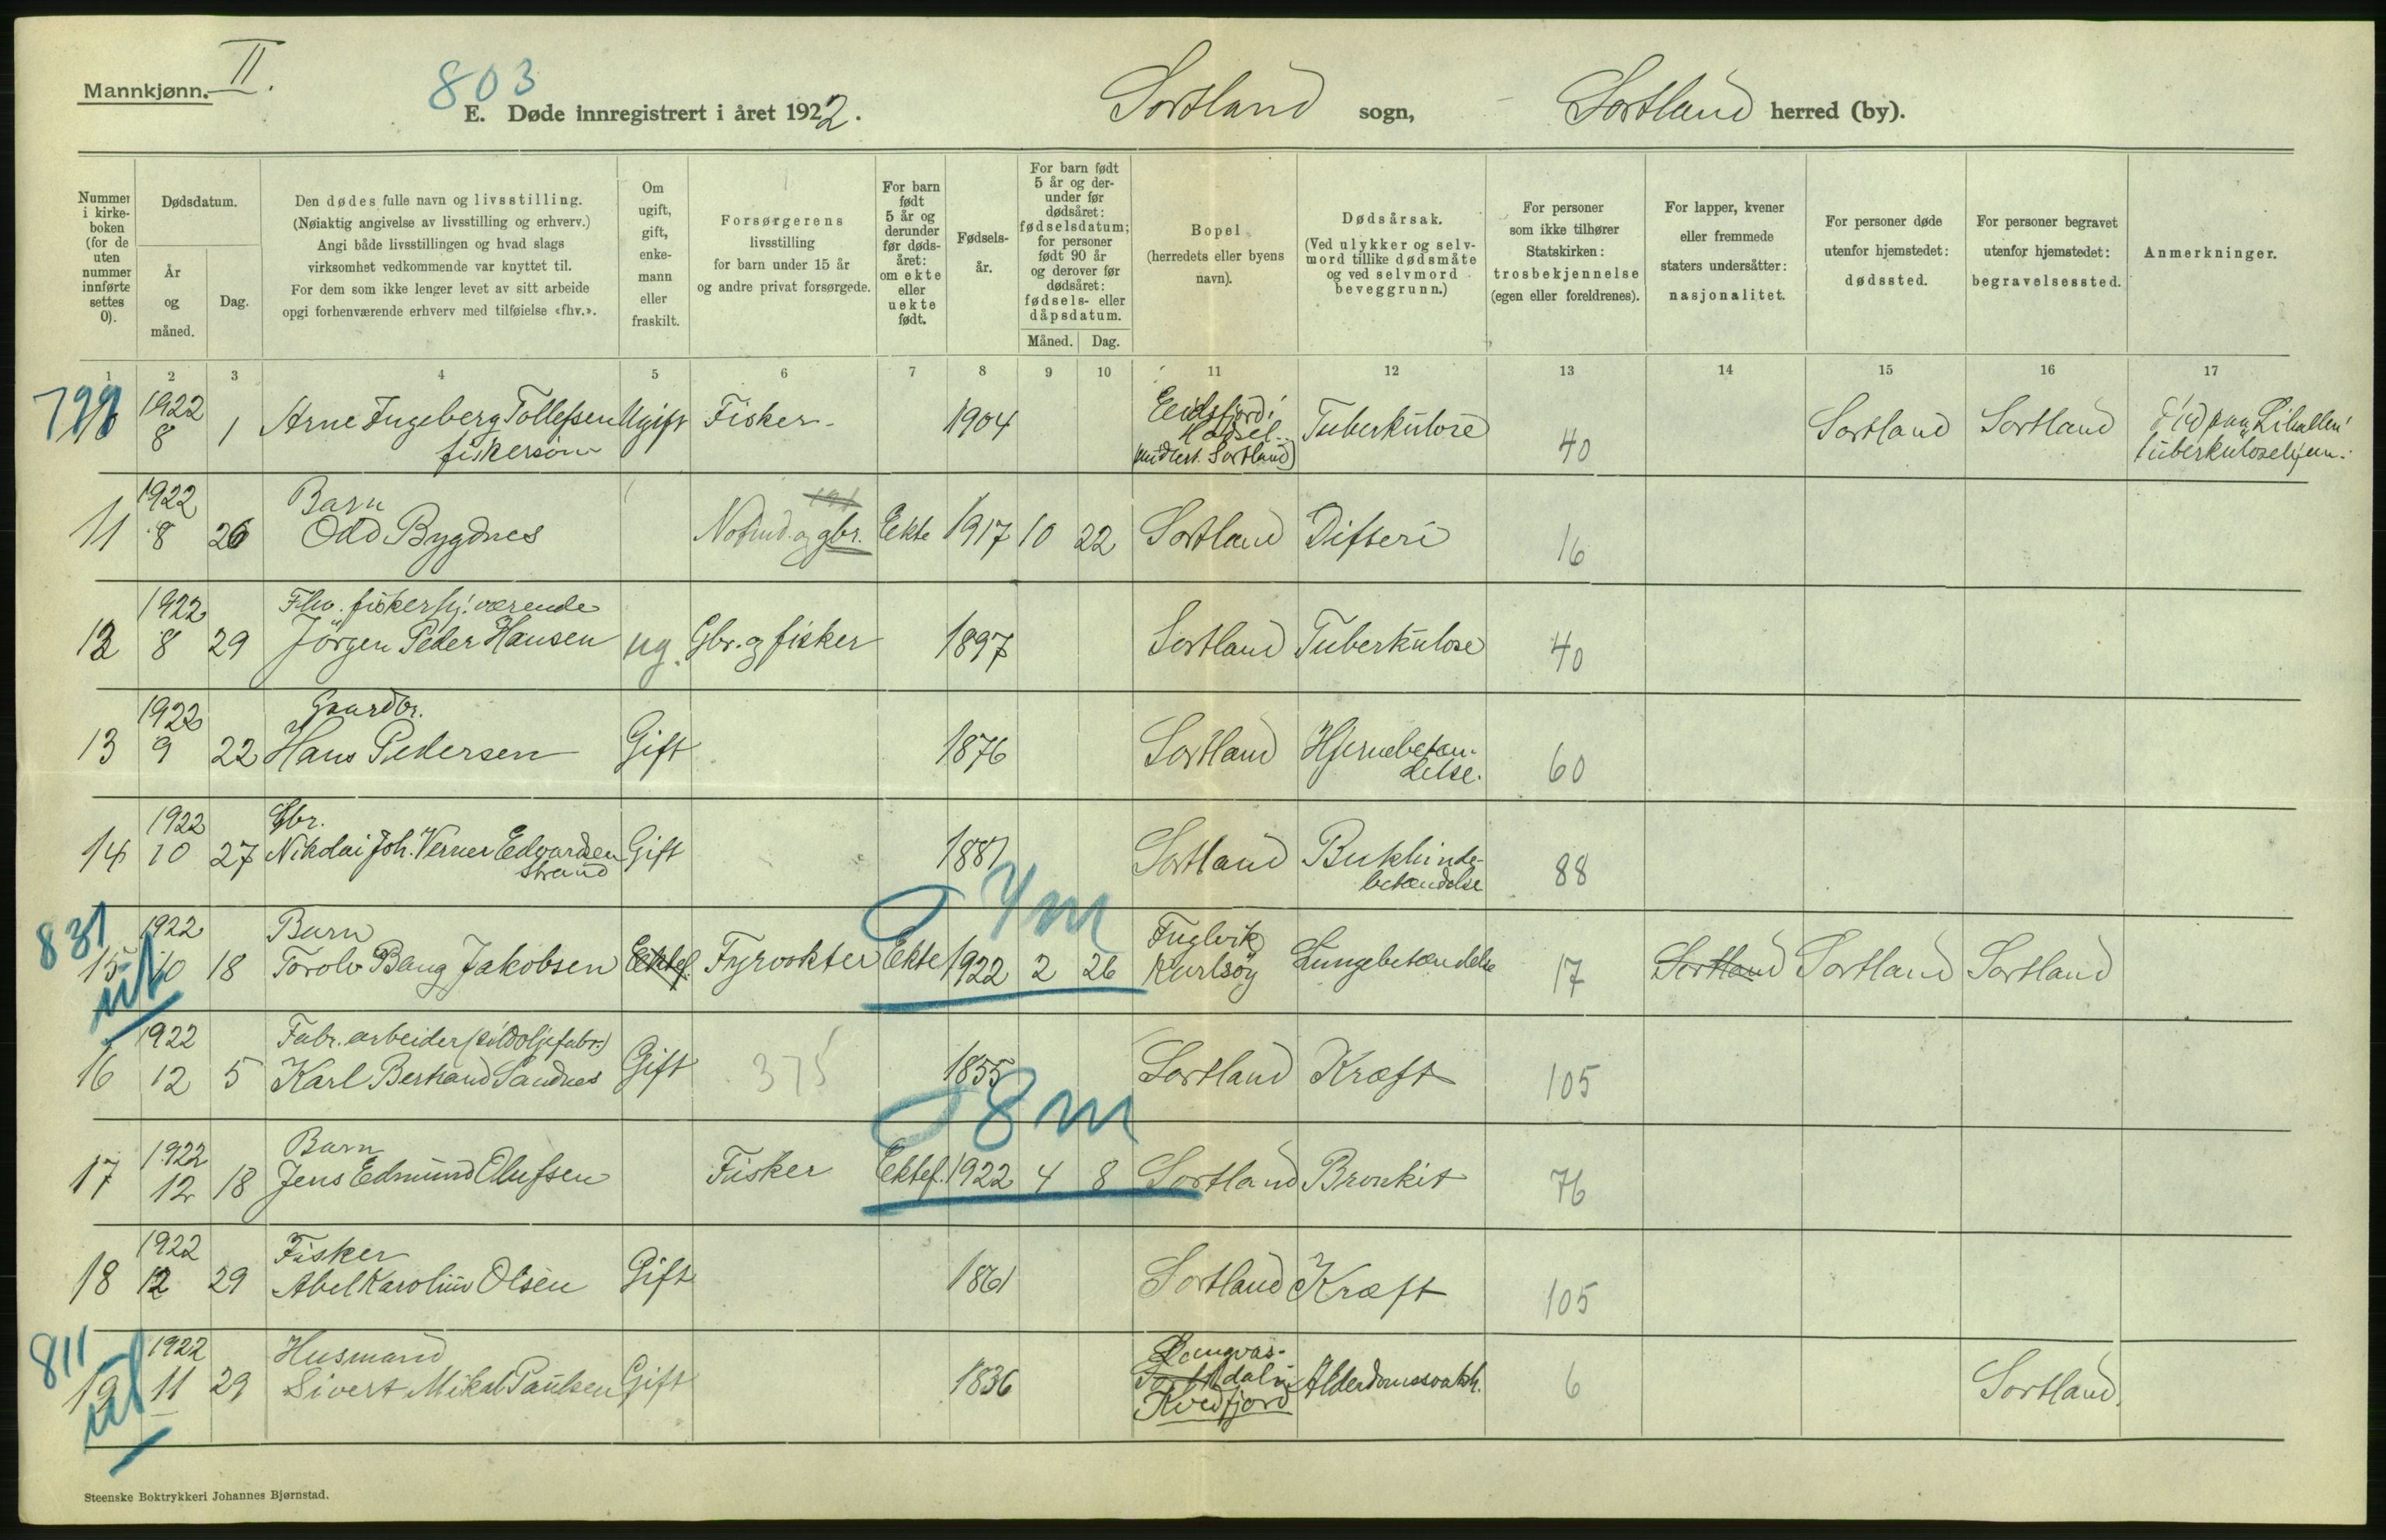 Mannkjønn. II.
803
E. Døde innregistrert i året 1922. Sortland sogn, Sortland herred (by).
Nummer i kirkeboken (for de uten nummer innførte settes 0).
Dødsdatum.
År og måned.
Dag.
Den dødes fulle navn og livsstilling.
(Nøiaktig angivelse av livsstilling og erhverv.)
Angi både livsstillingen og hvad slags
virksomhet vedkommende var knyttet til.
For dem som ikke lenger levet av sitt arbeide
opgi forhenværende erhverv med tilføielse «fhv.».
Om ugift, gift, enkemann eller fraskilt.
Forsørgerens
livsstilling
for barn under 15 år
og andre privat forsørgede.
For barn født 5 år og derunder før dødsåret: om ekte eller uekte født.
Fødselsår.
For barn født 5 år og derunder før dødsåret: fødselsdatum; for personer født 90 år og derover før dødsåret: fødsels- eller dåpsdatum.
Måned. Dag.
Bopel
(herredets eller byens navn).
Dødsårsak.
(Ved ulykker og selvmord tillike dødsmåte og ved selvmord beveggrunn.)
For personer som ikke tilhører Statskirken: trosbekjennelse (egen eller foreldrenes).
For lapper, kvener eller fremmede staters undersåtter: nasjonalitet.
For personer døde utenfor hjemstedet: dødssted.
For personer begravet utenfor hjemstedet: begravelsessted.
Anmerkninger.
1 2 3 4 5 6 7 8 9 10 11 12 13 14 15 16 17
799 10 1922 8 1 Arne Ingeberg Tollefsen fiskersøn Ugift Fisker 1904 Eidsfjord i Hadsel (midlert. Sortland) Tuberkulose 40 Sortland Sortland tuberkulosehjem.
11 1922 8 26 Barn Odd Bygdnes Notmd. og gbr. Ekte 1917 10 22 Sortland Difteri 16
12 1922 8 29 Fhv. fisker hj. værende Jörgen Peder Hansen ug. Gbr. og fisker 1897 Sortland Tuberkulose 40
13 1922 9 22 Gaardbr. Hans Pedersen Gift 1876 Sortland Hjernebetændelse. 60
14 1922 10 27 Gbr. Nikolai Joh. Verner Edvardsen Strand Gift 1881 Sortland Bukhindebetændelse 88
831 ut 15 1922 10 18 Barn Torolv Bang Jakobsen Ektef. Fyrvokter Ekte 1922 2 26 7m Fuglvik Karlsöy Lungebetændelse 17 Sortland Sortland Sortland
16 1922 12 5 Fabr. arbeider (sildoljefabr.) Karl Bertrand Sandnes Gift 375 1855 Sortland Kræft 105
17 1922 12 18 Barn Jens Edmund Olufsen Fisker Ektef. 1922 4 8 8m Sortland Bronkit 76
18 1922 12 29 Fisker Abel Karolius Olsen Gift 1861 Sortland Kræft 105
811 ut 19 1922 11 29 Husmand Sivert Mikal Paulsen Gift 1836 Langvasdalen Kvedfjord Alderdomssvakh. 6 Sortland.
Steenske Boktrykkeri Johannes Bjørnstad.